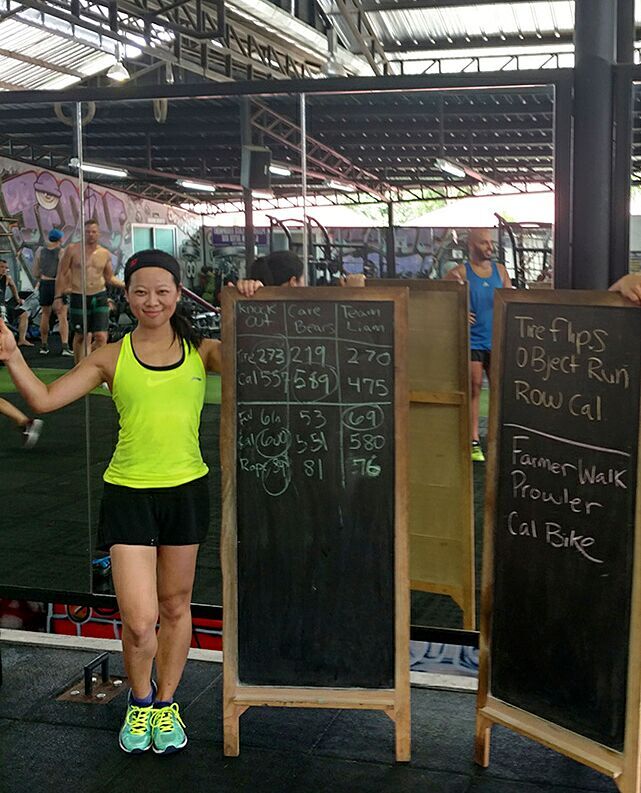 Knock Care Team
OUT Bears Liam
Tire 273 219 270
Cal 557 589 475
61 53 69
Cal 600 551 580
Rope 81 76
Tire flips
OBject Run
Row Cal
Farmer Walk
Prowler
Cal Bike